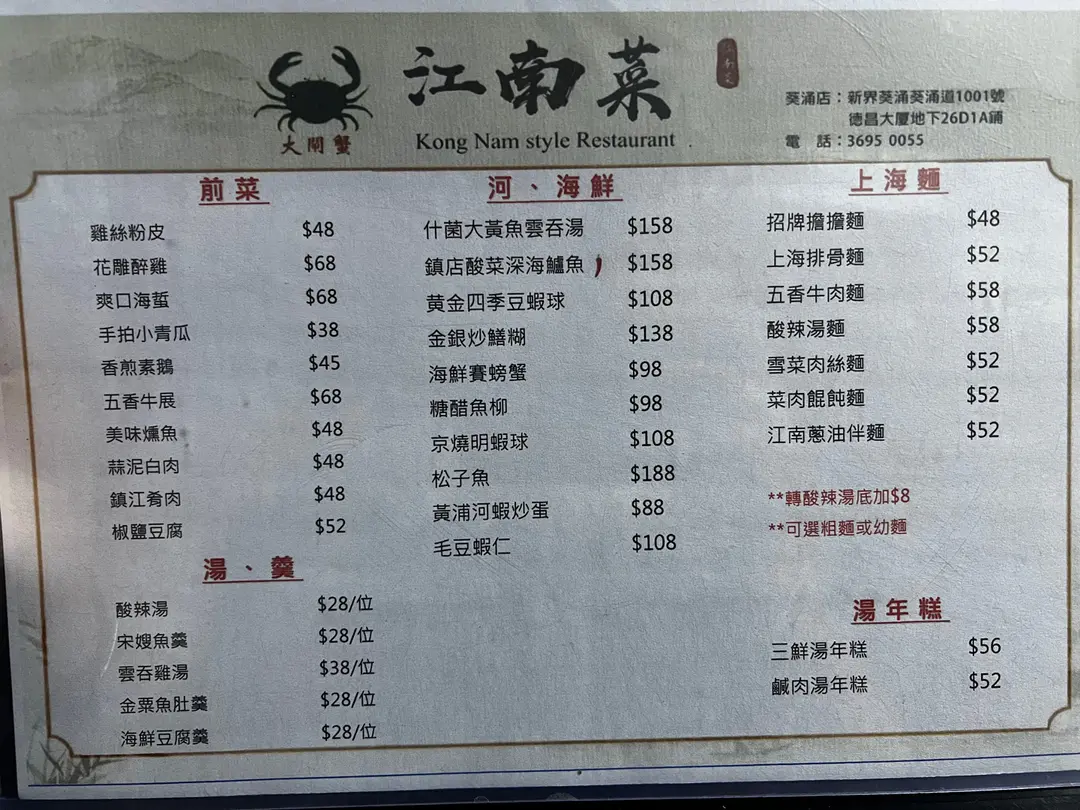 江南菜
大閘蟹
Kong Nam style Restaurant
葵涌店：新界葵涌葵涌道1001號
德昌大廈地下26D1A鋪
電 話：3695 0055
前菜
雞絲粉皮 $48
花雕醉雞 $68
爽口海蜇 $68
手拍小青瓜 $38
香煎素鵝 $45
五香牛展 $68
美味燻魚 $48
蒜泥白肉 $48
鎮江肴肉 $48
椒鹽豆腐 $52
湯、羹
酸辣湯 $28/位
宋嫂魚羹 $28/位
雲吞雞湯 $38/位
金粟魚肚羹 $28/位
海鮮豆腐羹 $28/位
河、海鮮
什菌大黃魚雲吞湯 $158
鎮店酸菜深海鱸魚 $158
黄金四季豆蝦球 $108
金銀炒鱔糊 $138
海鮮賽螃蟹 $98
糖醋魚柳 $98
京燒明蝦球 $108
松子魚 $188
黃浦河蝦炒蛋 $88
毛豆蝦仁 $108
上海麵
招牌擔擔麵 $48
上海排骨麵 $52
五香牛肉麵 $58
酸辣湯麵 $58
雪菜肉絲麵 $52
菜肉餛飩麵 $52
江南蔥油伴麵 $52
**轉酸辣湯底加$8
**可選粗麵或幼麵
湯年糕
三鮮湯年糕 $56
鹹肉湯年糕 $52